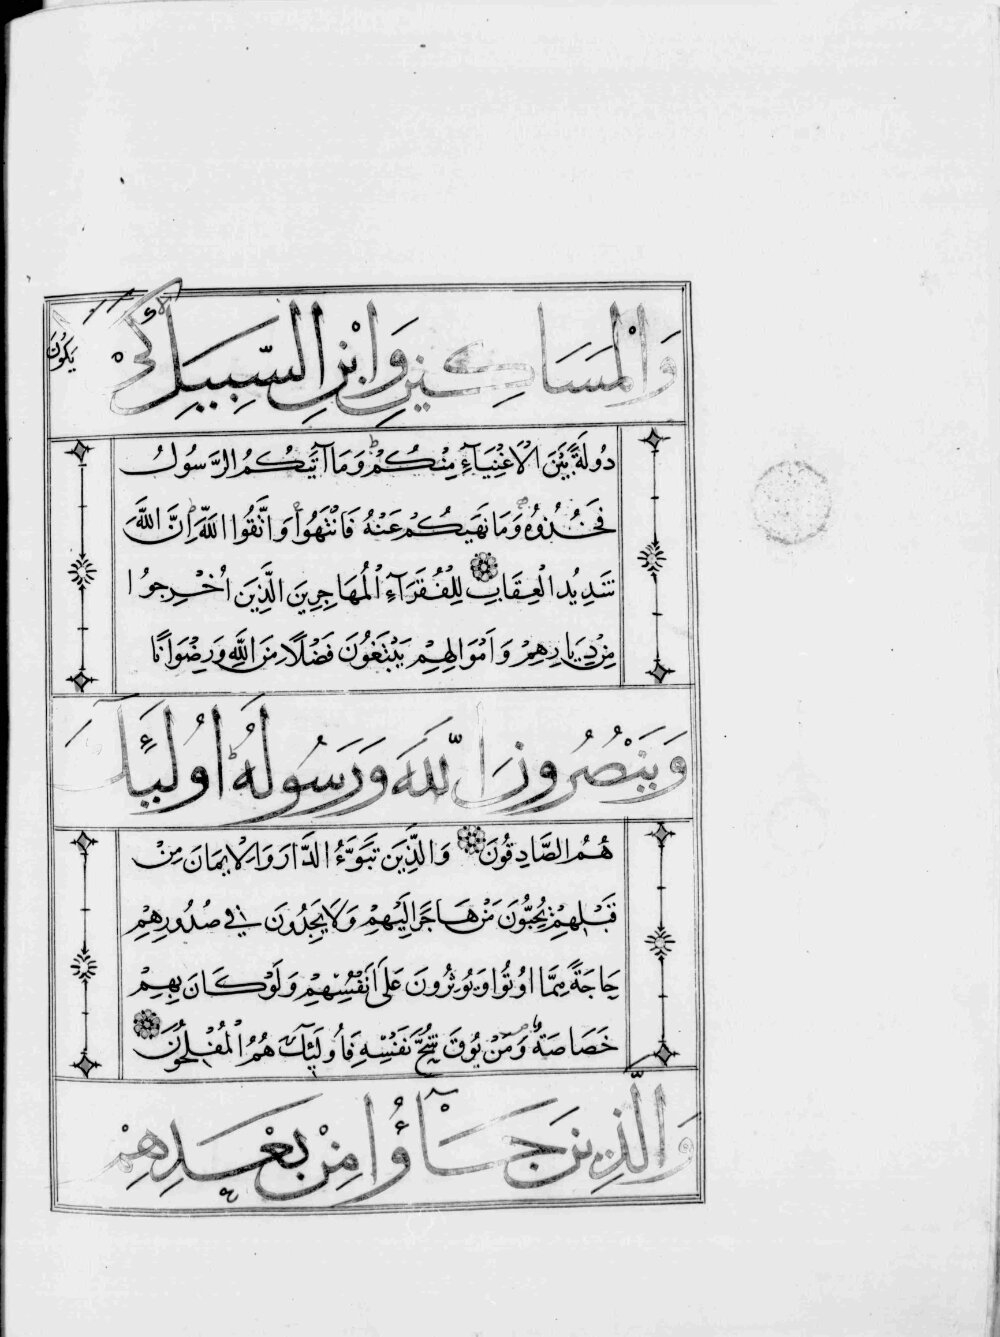 وَالْمَسَاكِينِ وَابْنِ السَّبِيلِ كَيْ لَا
يَكُونَ
دُولَةً بَيْنَ الْاَغْنِيَآءِ مِنْكُمْ وَمَا آتٰيكُمُ الرَّسُولُ
فَخُذُوهُ وَمَا نَهٰيكُمْ عَنْهُ فَانْتَهُوا وَاتَّقُوا اللّٰهَ اِنَّ اللّٰهَ
شَدِيدُ الْعِقَابِ لِلْفُقَرَآءِ الْمُهَاجِرِينَ الَّذِينَ اُخْرِجُوا
مِنْ دِيَارِهِمْ وَاَمْوَالِهِمْ يَبْتَغُونَ فَضْلًا مِنَ اللّٰهِ وَرِضْوَانًا
وَيَنْصُرُونَ اللّٰهَ وَرَسُولَهُ اُولٰٓئِكَ
هُمُ الصَّادِقُونَ وَالَّذِينَ تَبَوَّءُ الدَّارَ وَالْاِيمَانَ مِنْ
قَبْلِهِمْ يُحِبُّونَ مَنْ هَاجَرَ اِلَيْهِمْ وَلَا يَجِدُونَ فِي صُدُورِهِمْ
حَاجَةً مِمَّا اُوتُوا وَيُوثِرُونَ عَلَى اَنْفُسِهِمْ وَلَوْ كَانَ بِهِمْ
خَصَاصَةٌ وَمَنْ يُوقَ شُحَّ نَفْسِهِ فَاُولٰٓئِكَ هُمُ الْمُفْلِحُونَ
وَالَّذِينَ جَآؤُا مِنْ بَعْدِهِمْ